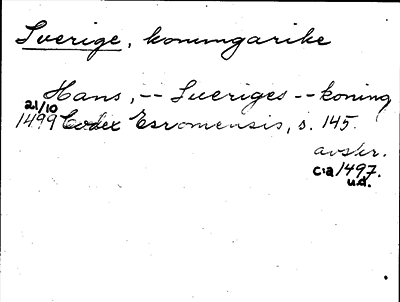 Sverige, konungarike
Hans, -- Sveriges -- koning
21/10
1499 Codex Esromensis, s. 145.
avskr.
c:a 1497.
u.d.